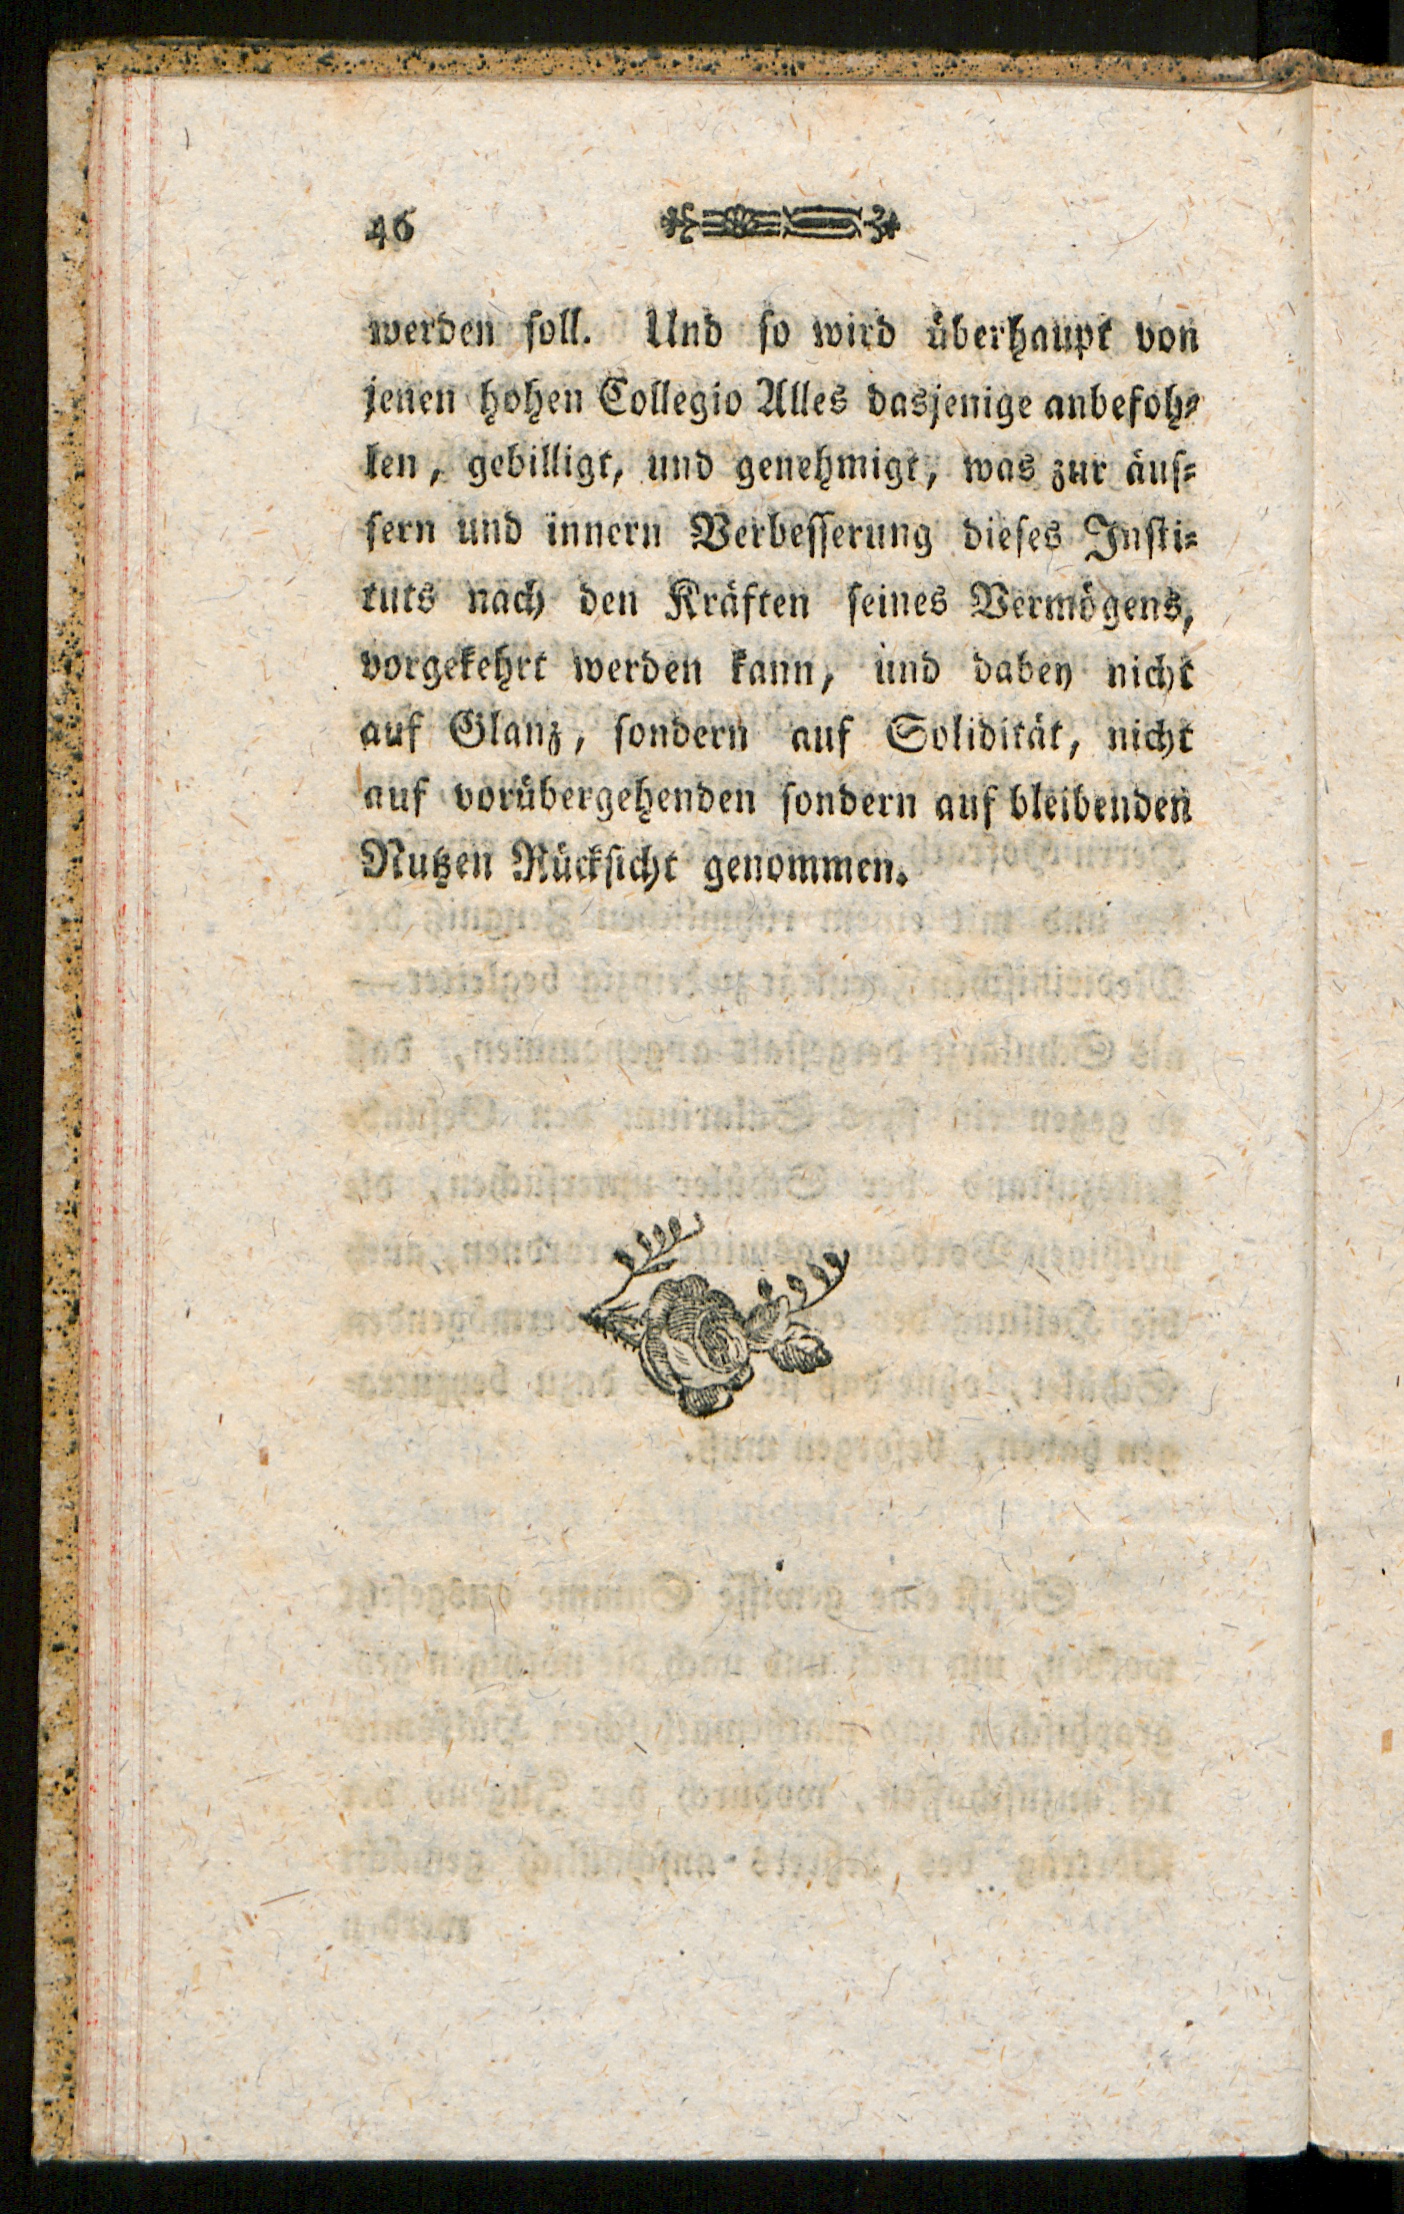 46
werden soll. Und so wird überhaupt von
jenen hohen Collegio Alles dasjenige anbefoh-
len, gebilligt, und genehmigt, was zur äus-
sern und innern Verbesserung dieses Insti-
tuts nach den Kräften seines Vermögens,
vorgekehrt werden kann, und dabey nicht
auf Glanz, sondern auf Solidität, nicht
auf vorübergehenden sondern auf bleibenden
Nutzen Rücksicht genommen.